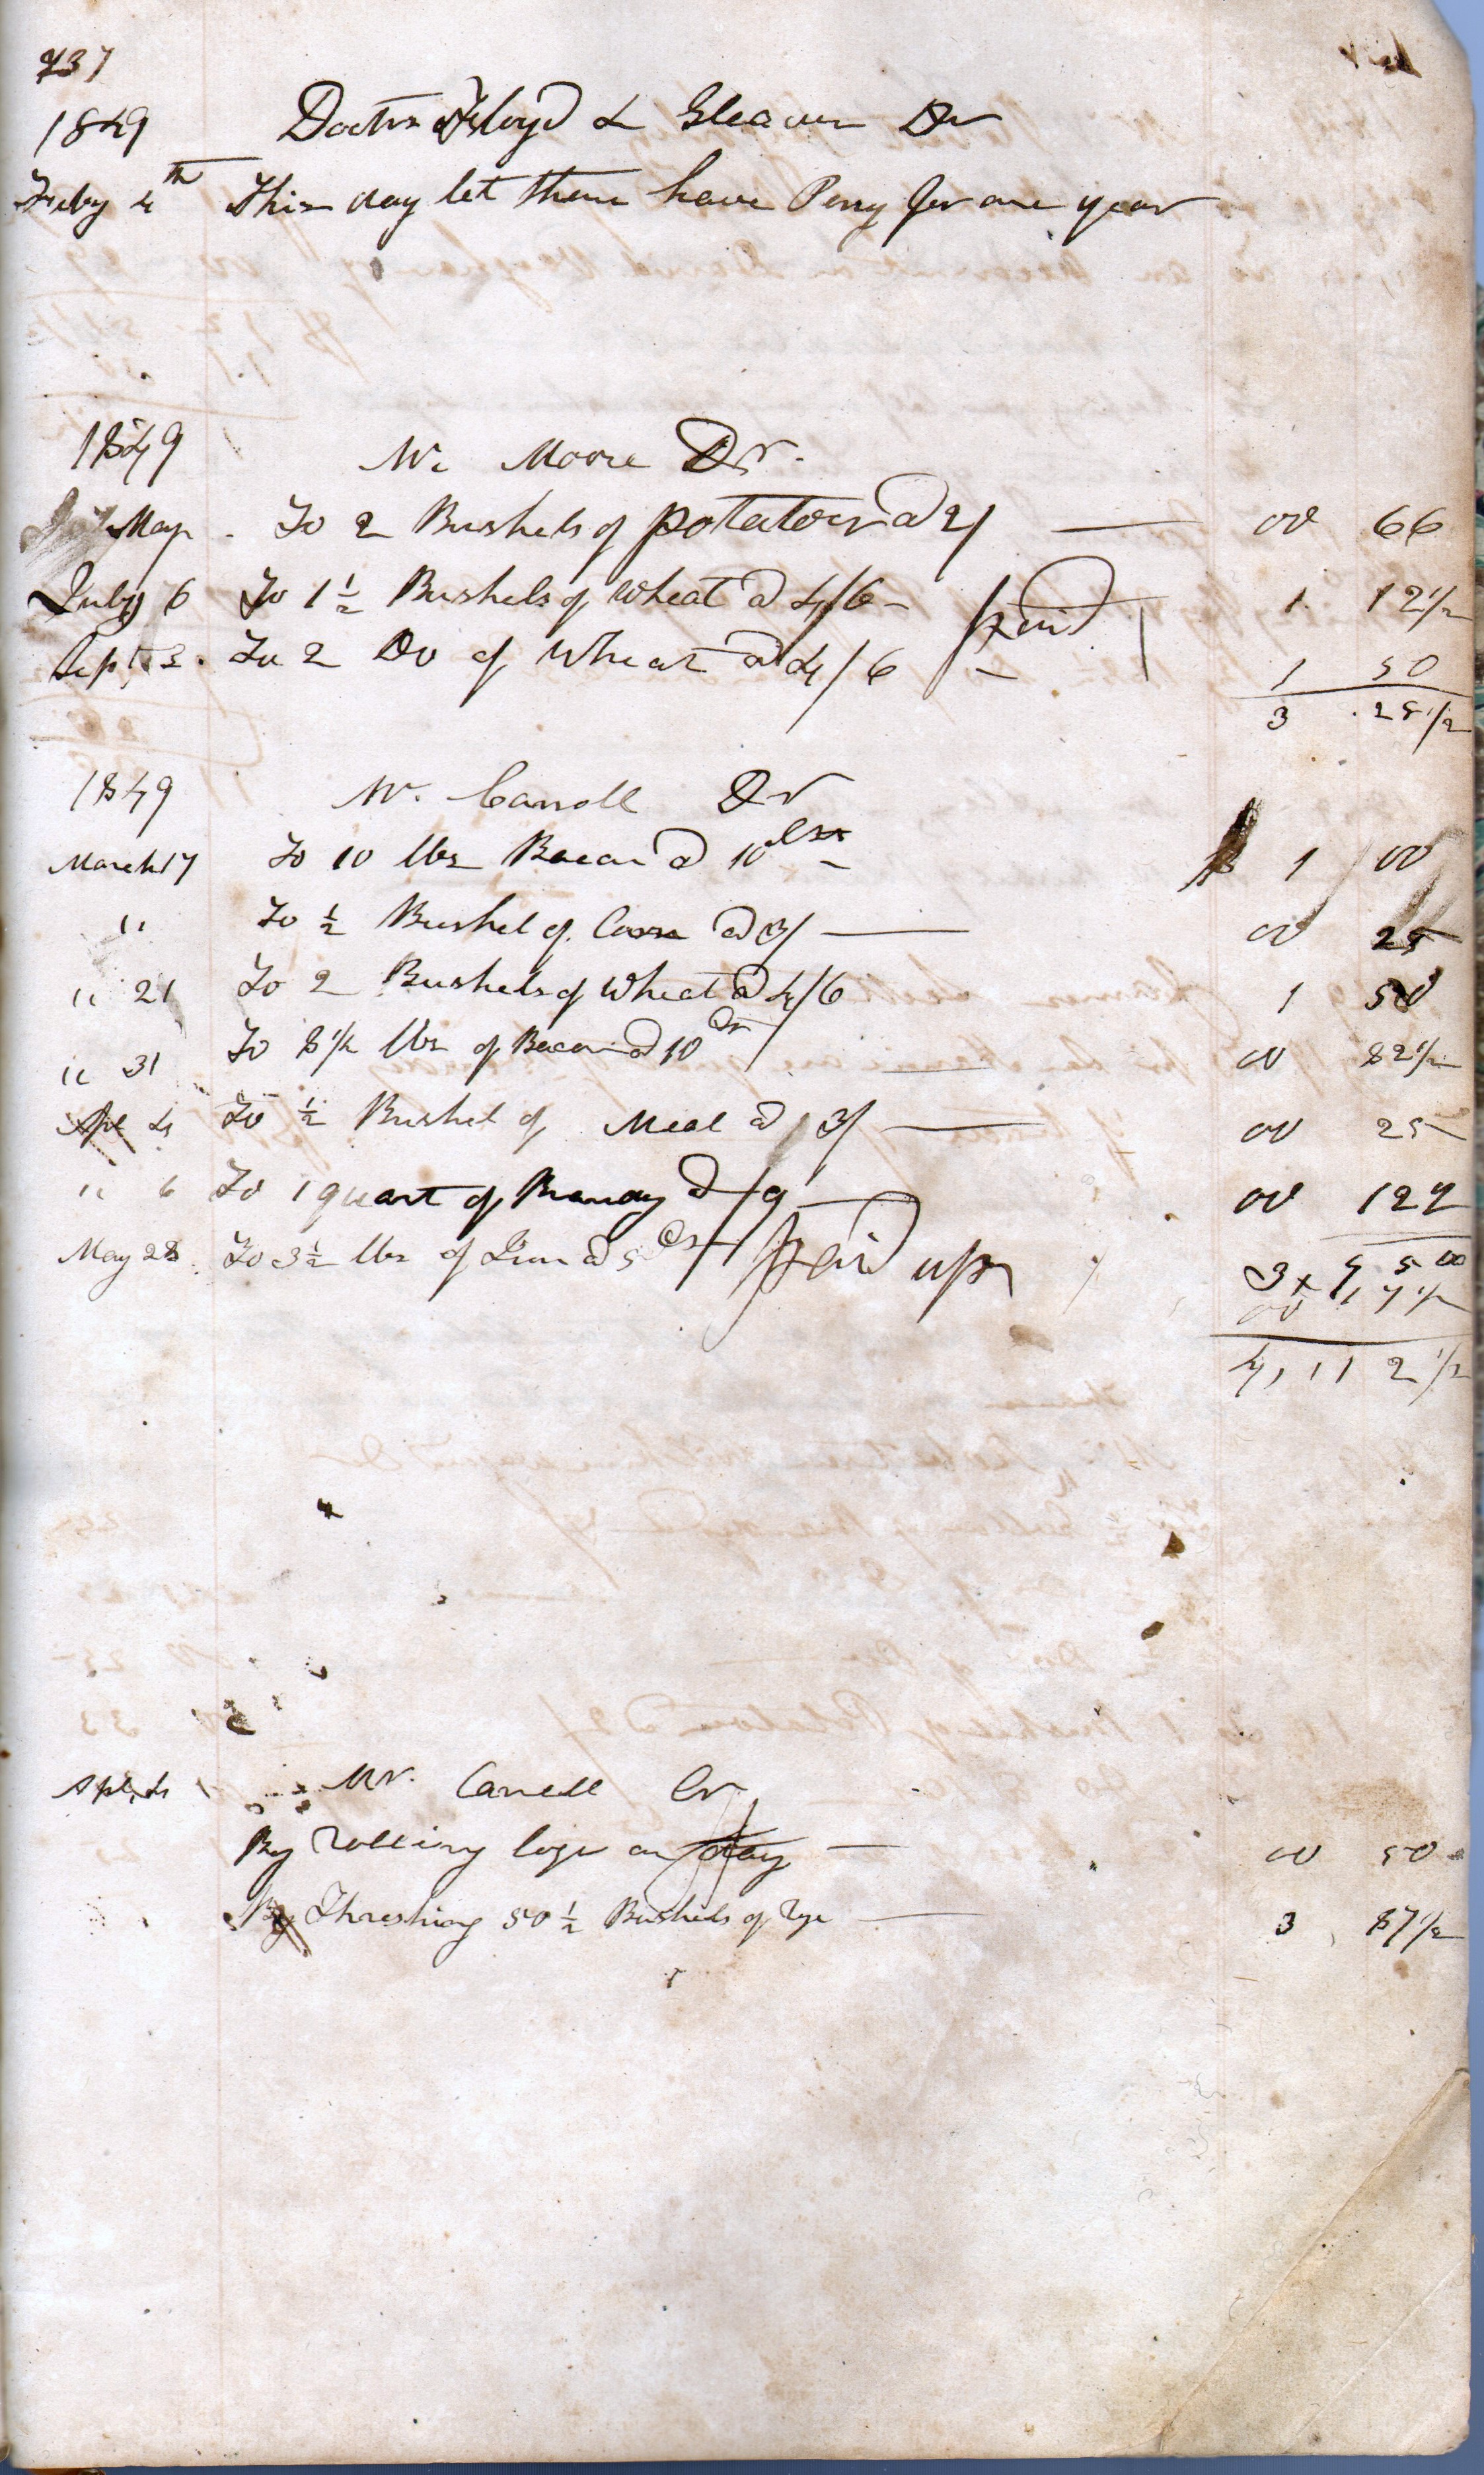 737
1849 Doctor Floyd & Gleaver Dr
Feby 4th This day let them have Perry for one year
1849 Mr Moore Dr.
May To 2 Bushels of potatoes @ 2/ 00 66
July 6 To 1 1/2 Bushels of wheat @ 4/6 1 12 1/2
paid
Sept 3. To 2 Do of Wheat @ 4/6 1 50
3 .28 1/2
1849 Mr. Carroll Dr
March 17 To 10 lbs Bacon @ 10 cts $ 1 00
" To 1/2 Bushel of Corn @ 3/ 00 25
" 21 To 2 Bushels of wheat @ 4/6 1 50
" 31 To 8 1/4 lbs of Bacon @ 10 cts 00 82 1/2
Apl 4 To 1/2 Bushel of Meal @ 3/ 00 25
" 6 To 1 quart of Brandy @ /9 00 12
May 28. To 3 1/2 lbs of @ 5 cts paid up
00 17 1/2
4, 11 2 1/2
Apl, 4 Mr. Carrell Cr
By rolling logs one day 00 50
By Threshing 50 1/2 Bushels of rye 3 87 1/2